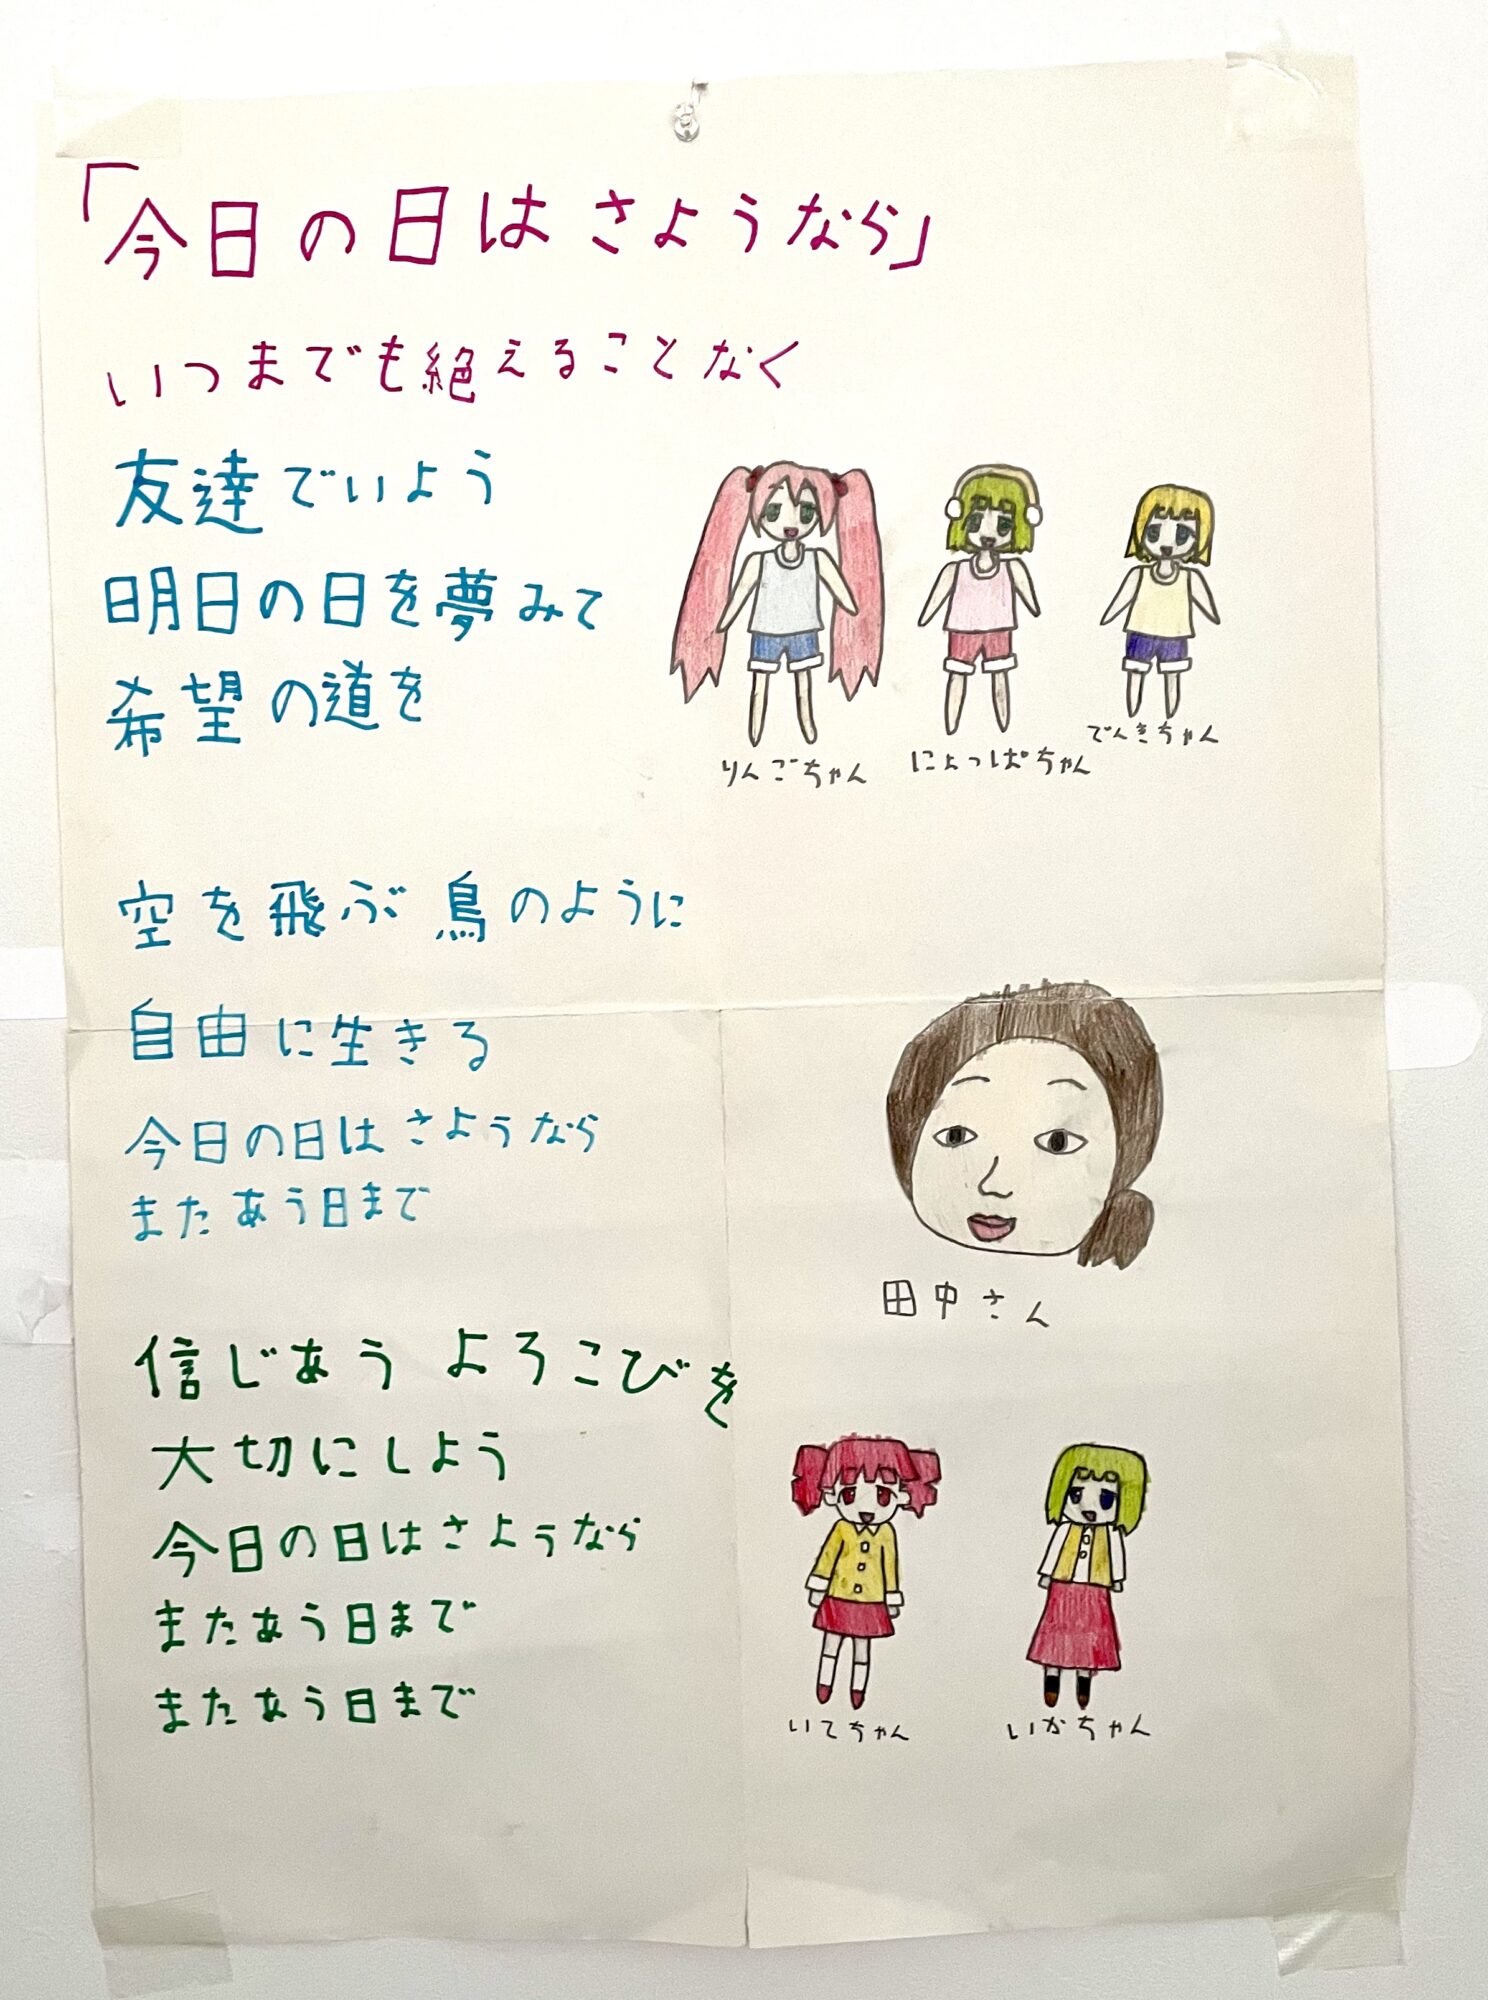 「今日の日はさようなら」
いつまでも絶えることなく
友達でいよう
明日の日を夢みて
希望の道を
りんごちゃん
にょっぱちゃん
でんきちゃん
空を飛ぶ鳥のように
自由に生きる
今日の日はさようなら
またあう日まで
田中さん
信じあうよろこびを
大切にしよう
今日の日はさようなら
またあう日まで
またあう日まで
いてちゃん
いかちゃん